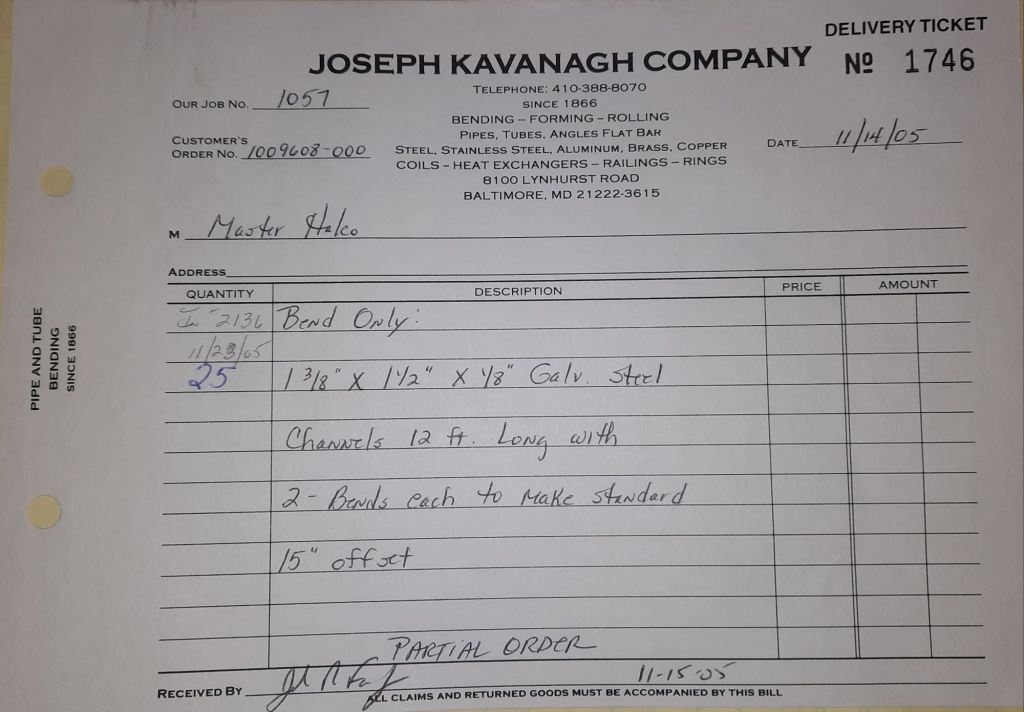 DELIVERY TICKET
JOSEPH KAVANAGH COMPANY
Nº 1746
TELEPHONE: 410-388-8070
SINCE 1866
BENDING – FORMING – ROLLING
PIPES, TUBES, ANGLES FLAT BAR
STEEL, STAINLESS STEEL, ALUMINUM, BRASS, COPPER
COILS – HEAT EXCHANGERS – RAILINGS – RINGS
8100 LYNHURST ROAD
BALTIMORE, MD 21222-3615
OUR JOB NO. 1057
CUSTOMER'S
ORDER NO. 1009608-000
DATE 11/14/05
M Master Halco
ADDRESS
QUANTITY DESCRIPTION PRICE AMOUNT
2136 Bend Only:
11/23/05
25 1 3/8" X 1 1/2" X 1/8" Galv. Steel
Channels 12 ft. Long with
2 - Bends each to Make Standard
15" offset
PARTIAL ORDER
RECEIVED BY 11-15-05
ALL CLAIMS AND RETURNED GOODS MUST BE ACCOMPANIED BY THIS BILL
PIPE AND TUBE
BENDING
SINCE 1866